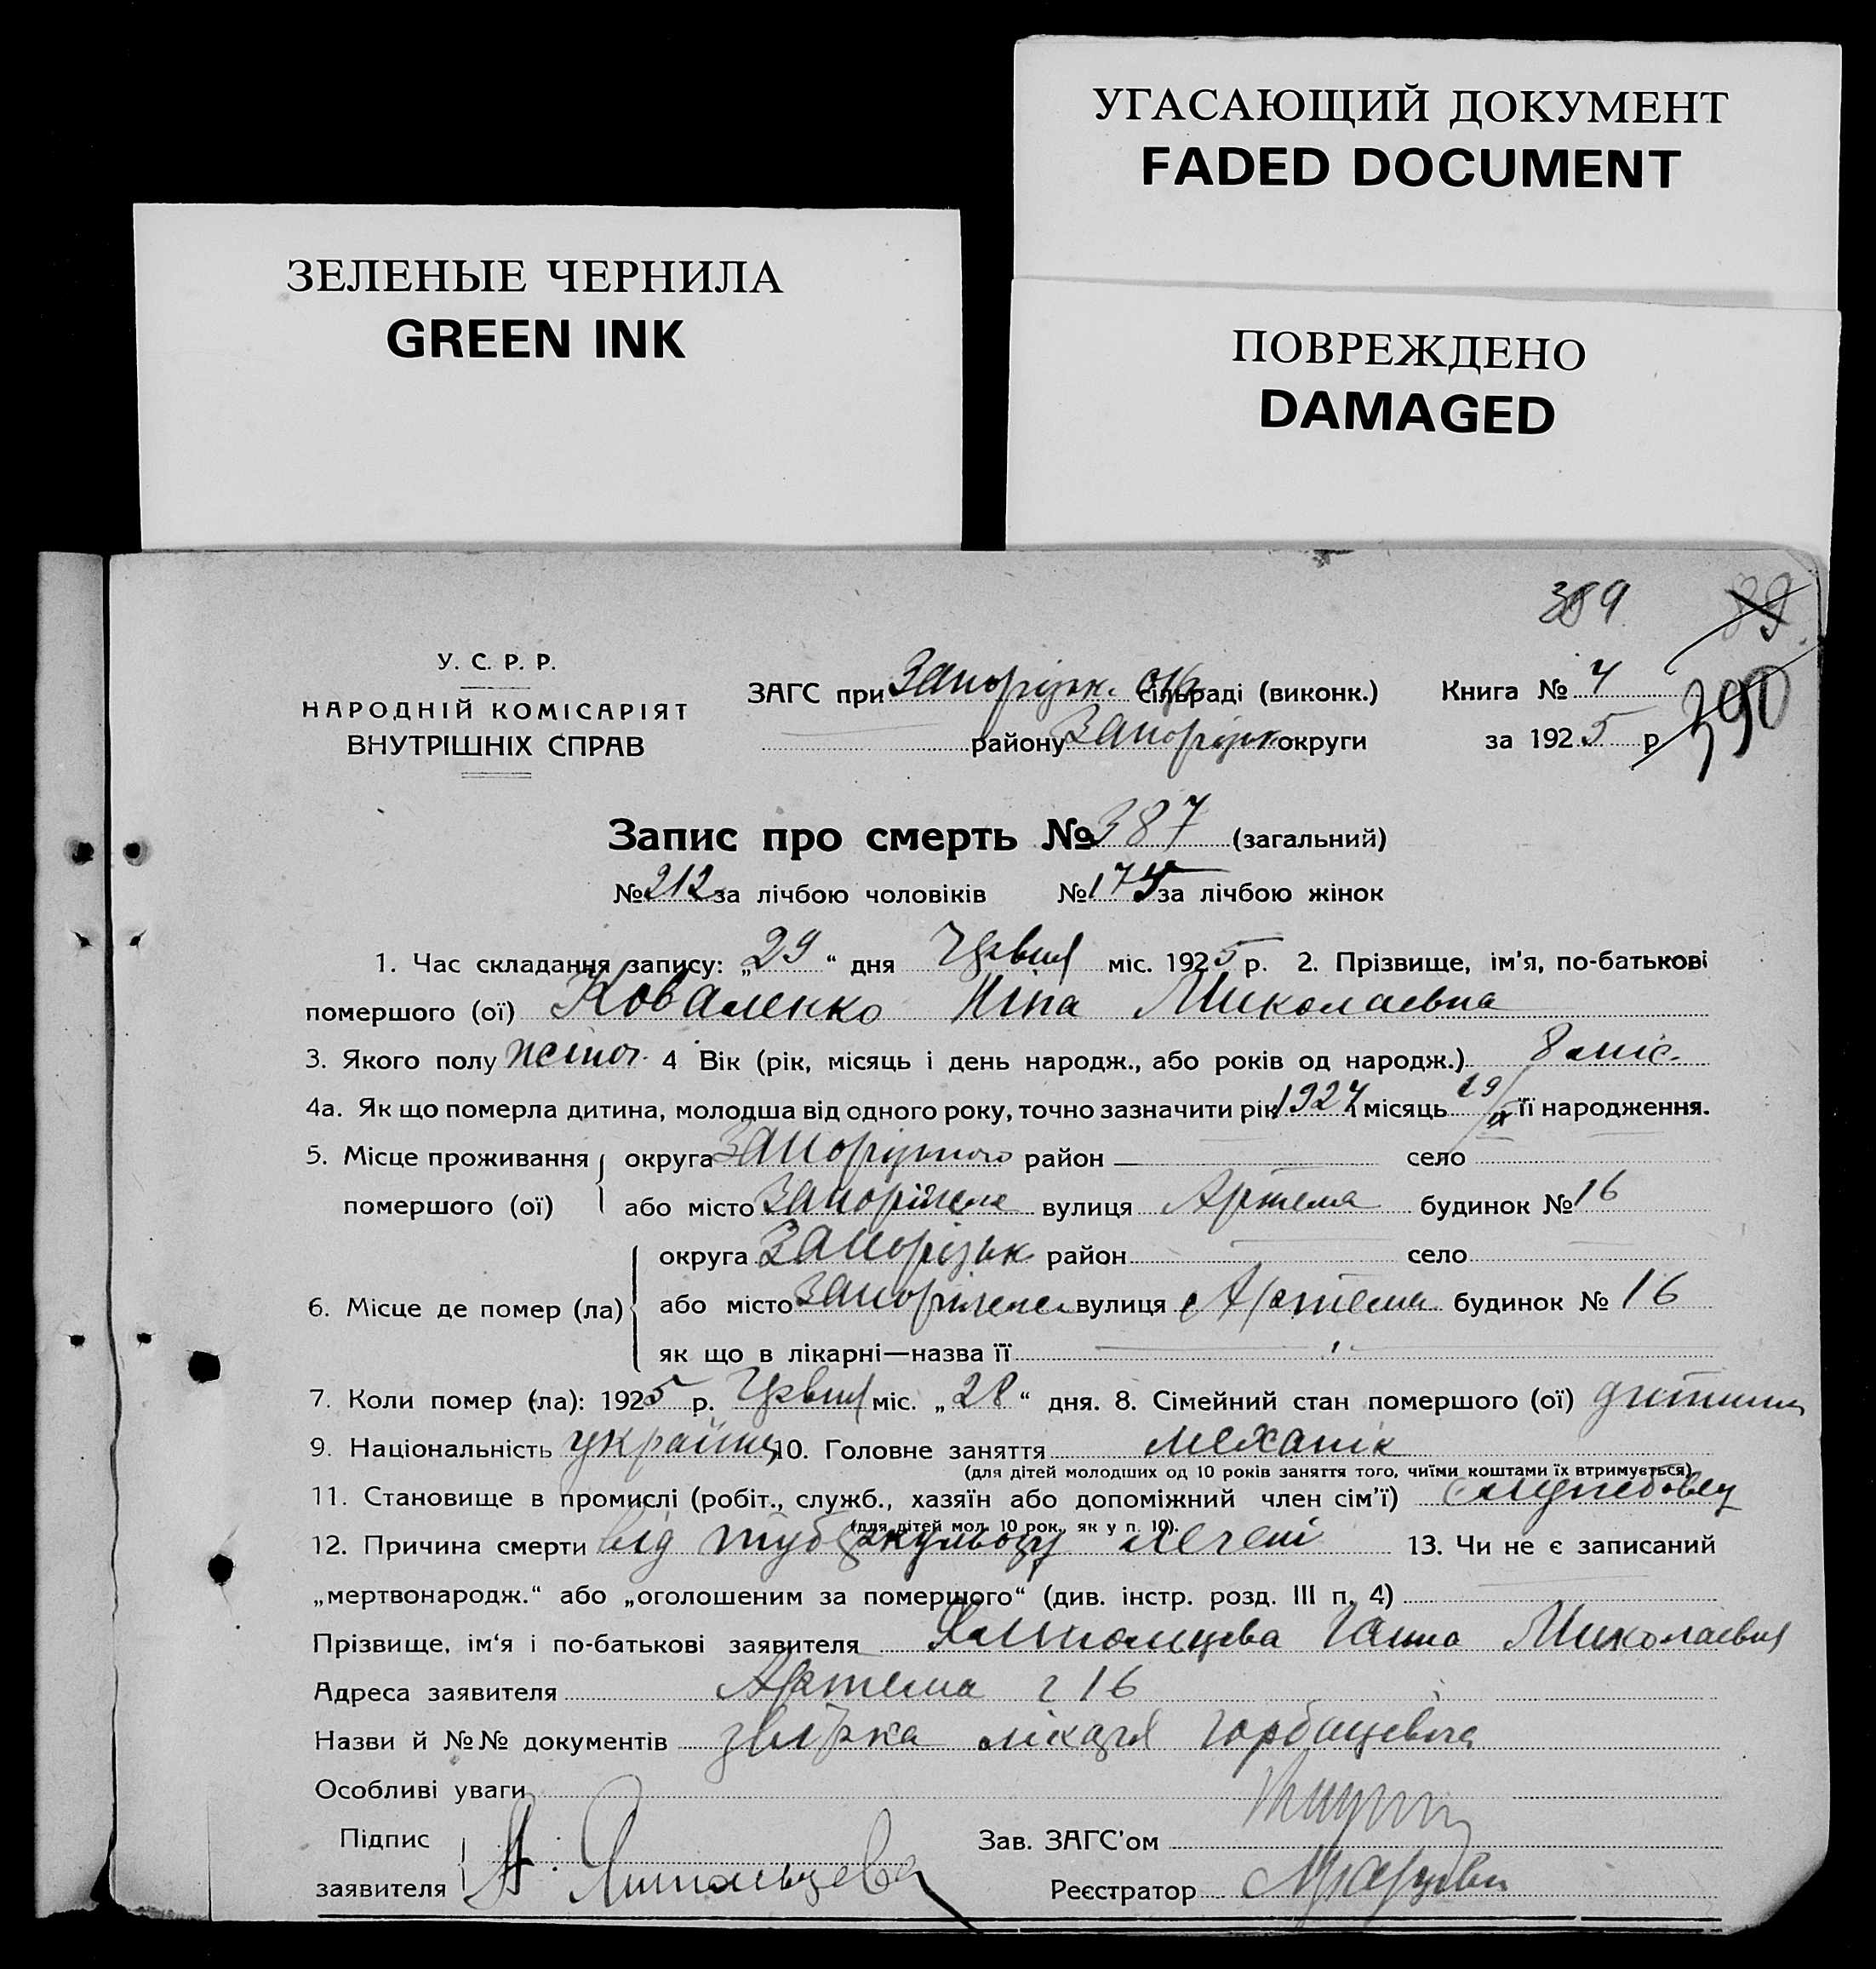 УГАСАЮЩИЙ ДОКУМЕНТ
FADED DOCUMENT
ЗЕЛЕНЫЕ ЧЕРНИЛА
GREEN INK
ПОВРЕЖДЕНО
DAMAGED
389 89
У. С. Р. Р.
НАРОДНІЙ КОМІСАРІЯТ
ВНУТРІШНІХ СПРАВ
ЗАГС при Запорізьк. сільраді (виконк.) Книга № 4 390
району Запорізьк округи за 1925 р.
Запис про смерть № 387 (загальний)
№ 212 за лічбою чоловіків № 175 за лічбою жінок
1. Час складання запису: „29“ дня Червня міс. 1925 р. 2. Прізвище, ім'я, по-батькові
помершого (ої) Коваленко Ніна Миколаевна
3. Якого полу жіноч. 4 Вік (рік, місяць і день народж., або років од народж.) 8 міс.
4а. Як що померла дитина, молодша від одного року, точно зазначити рік 1924 і місяць 29/ її народження.
5. Місце проживання округа район село
помершого (ої) або місто Запоріжжя вулиця Артема будинок № 16
округа Запорізьк район село
6. Місце де помер (ла) або місто Запоріжже вулиця Артема будинок № 16
як що в лікарні—назва її
7. Коли помер (ла): 1925 р. Червня міс. „28“ дня. 8. Сімейний стан помершого (ої) дитина
9. Національність україн. 10. Головне заняття механік
(для дітей молодших од 10 років заняття того, чиїми коштами їх втримується)
11. Становище в промислі (робіт., служб., хазяїн або допоміжний член сім'ї)
(для дітей мол. 10 рок., як у п. 10).
12. Причина смерти від туберкульозу легені 13. Чи не є записаний
„мертвонародж.“ або „оголошеним за помершого“ (див. інстр. розд. III п. 4)
Прізвище, ім'я і по-батькові заявителя Ганна Миколаевна
Адреса заявителя Артема 16
Назви й №№ документів лікаря Горбацевіча
Особливі уваги
Підпис Зав. ЗАГС'ом
заявителя А. Реєстратор